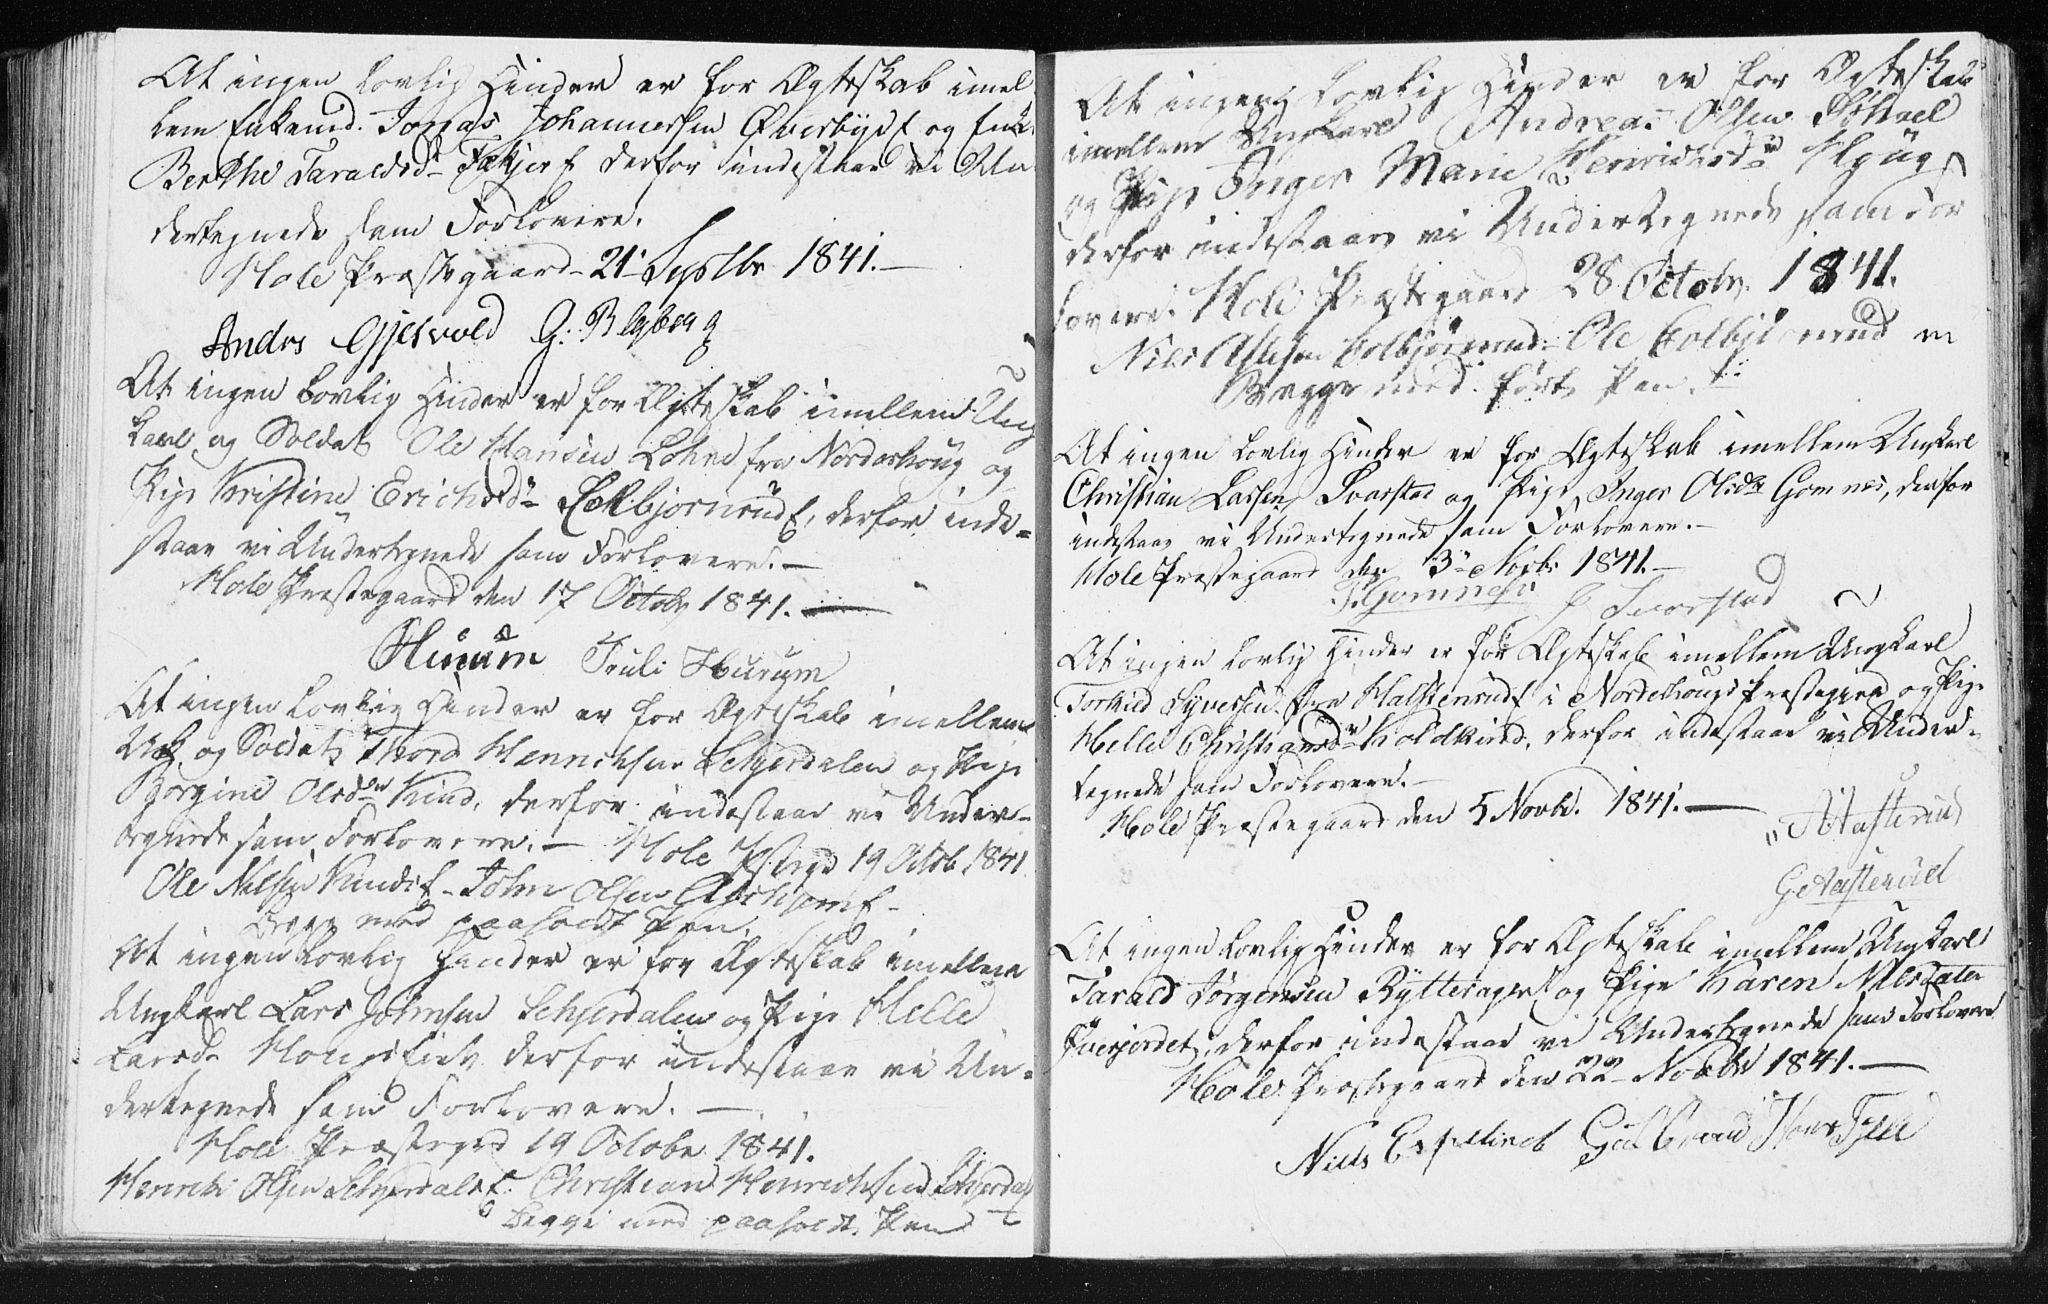 At ingen lovlig Hinder er for Ægteskab imel
lem Enkemd. Jonas Johannessen Øverbye og Enke
Berthe Taraldsd. Fækjer derfor indestaae vi Un
dertegnede som Forlovere.
Hole Præstegaard 21 Septbr 1841.
Andrs Gjesvold G. Blyberg
At ingen lovlig Hinder er for Ægteskab imellem Ung
karl og Soldat Ole Hansen Lohne fra Norderhoug og
Pige Kristine Erichsd. Kolbjørnrud, derfor inde=
staae vi Undertegnede som Forlovere.
Hole Præstegaard den 17 Octobr 1841.
Hurum Truls Hurum
At ingen lovlig Hinder er for Ægteskab imellem
Uk. og Soldat Thord Henrichsen Schjerdalen og Pige
Jørgine Olsdtr Kind, derfor indestaae vi Under-
tegnede som Forlovere. Hole Pstgrd 19 Octob. 1841
Ole Nilsen Kind John Olsen
Begge med paaholdt Pen.
At ingen lovlig Hinder er for Ægteskab imellem
Ungkarl Lars Johnsen Schjerdalen og Pige Helle
Larsd. derfor indestaae vi Un-
dertegnede som Forlovere.
Hole Præstegrd 19 Octobr 1841.
Henrich Olsen Schjerdal Christian Henrichsen Schjerdal
Begge med paaholdt Pen
At ingen lovlig Hinder er for Ægteskab
imellem Ungkarl Andreas Olsen
og Pige Inger Marie Henrichsdr
derfor indestaae vi Undertegnede som For
lovere. Hole Præstegaard 28 Octobr. 1841.
Nils Kolbjørnrud Ole Kolbjørnrud
Begge med ført Pen.
At ingen lovlig Hinder er for Ægteskab imellem Ungkarl
Christian Larsen Svarstad og Pige Inger Olsdr Gomnes, derfor
indestaae vi Undertegnede som Forlovere.
Hole Præstegaard den 3 Novbr 1841.
Gomnes Svarstad
At ingen lovlig Hinder er for Ægteskab imellem Ungkarl
Torkild Syversen fra Halstenrud i Norderhougs Præstegield og Pige
Helle Christiansdr Koldkind, derfor indestaae vi Under-
tegnede som Forlovere.
Hole Præstegaard den 5 Novbr. 1841.
At ingen lovlig Hinder er for Ægteskab imellem Ungkarl
Tarald Jørgensen Rytterager og Pige Karen Nilsdatter
derfor indestaae vi Undertegnede som Forlovere
Hole Præstegaard den 22 Novbr 1841.
Niels Hans Fjeld